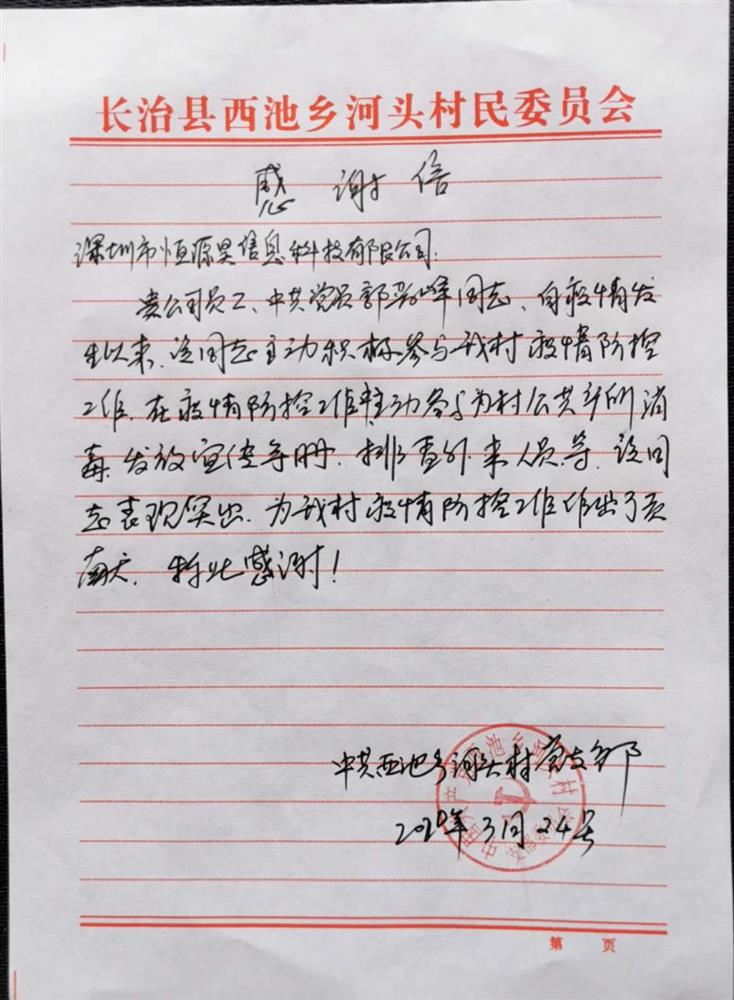 长治县西池乡河头村民委员会
感谢信
深圳市恒源昊信息科技有限公司:
贵公司员工、中共党员郭兴峰同志,自疫情发
生以来,该同志主动积极参与我村疫情防控
工作,在疫情防控工作中主动参与为村公共厕所消
毒,发放宣传手册,排查外来人员等,该同
志表现突出,为我村疫情防控工作作出了贡
献,特此感谢!
中共西池乡河头村党支部
2020年3月24号
第 页